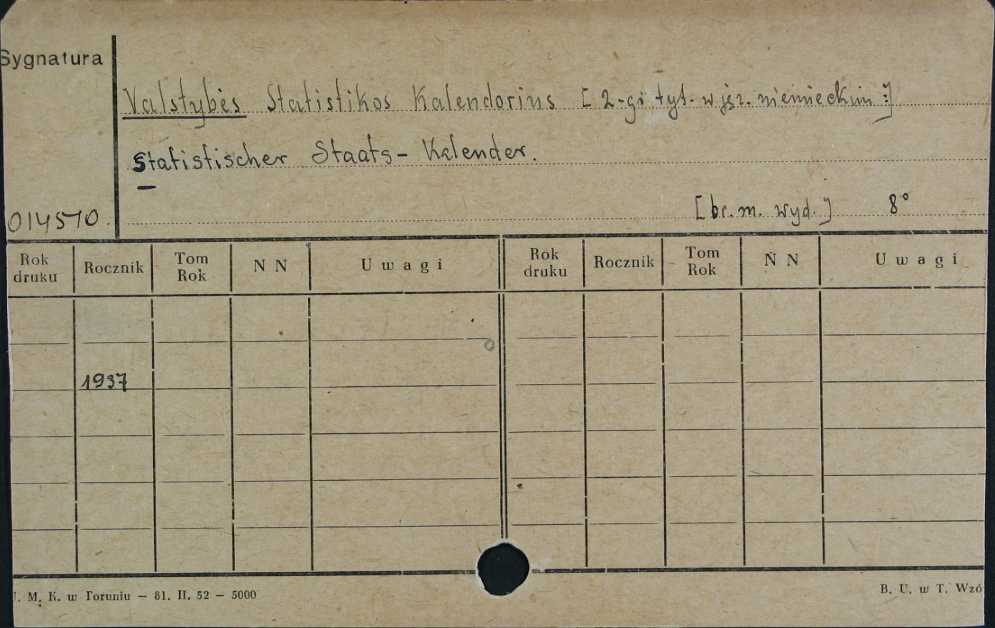 Sygnatura
Valstybės Statistikos Kalendorius [2-gi tyt. w jęz. niemieckim:]
Statistischer Staats-Kalender.
014570
[br. m. wyd.] 8°
Rok druku Rocznik Tom Rok N N Uwagi Rok druku Rocznik Tom Rok N N Uwagi
1937
U. M. K. w Toruniu — 81. II. 52 — 5000
B. U. w T. Wzó